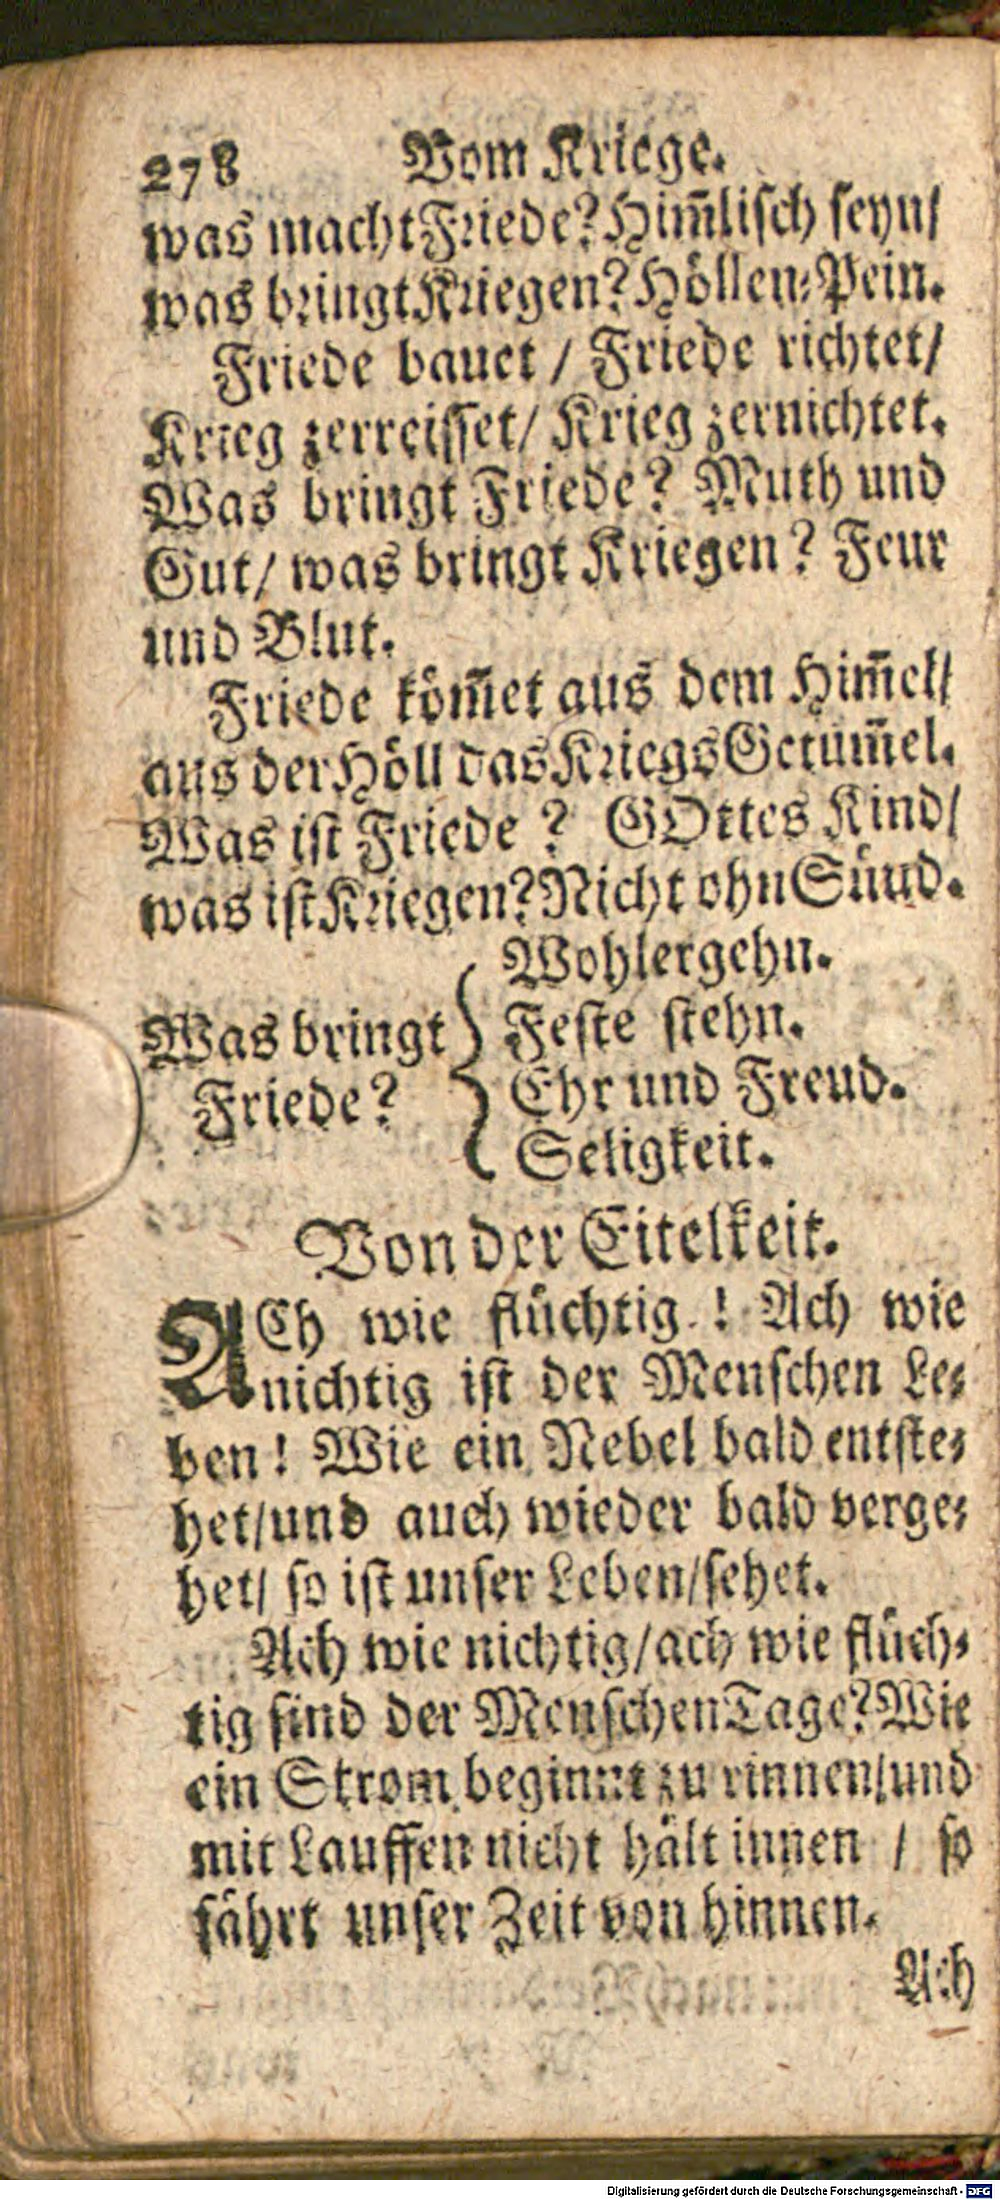 278 Vom Kriege.
was macht Friede? Him̃lisch seyn/
was bringt Kriegen? Höllen-Pein.
Friede bauet / Friede richtet/
Krieg zerreisset/ Krieg zernichtet.
Was bringt Friede? Muth und
Gut/ was bringt Kriegen? Feur
und Blut.
Friede köm̃et aus dem Him̃el/
aus der Höll das Kriegs Getüm̃el.
Was ist Friede? GOttes Kind/
was ist Kriegen? Nicht ohn Sünd.
Was bringt Friede?
Wohlergehn.
Feste stehn.
Ehr und Freud.
Seligkeit.
Von der Eitelkeit.
ACh wie flüchtig! Ach wie
nichtig ist der Menschen Le-
ben! Wie ein Nebel bald entste-
het/und auch wieder bald verge-
het/ so ist unser Leben/sehet.
Ach wie nichtig/ach wie flüch-
tig sind der Menschen Tage? Wie
ein Strom beginnt zu rinnen/und
mit Lauffen nicht hält innen / so
fährt unser Zeit von hinnen.
Ach
Digitalisierung gefördert durch die Deutsche Forschungsgemeinschaft - DFG